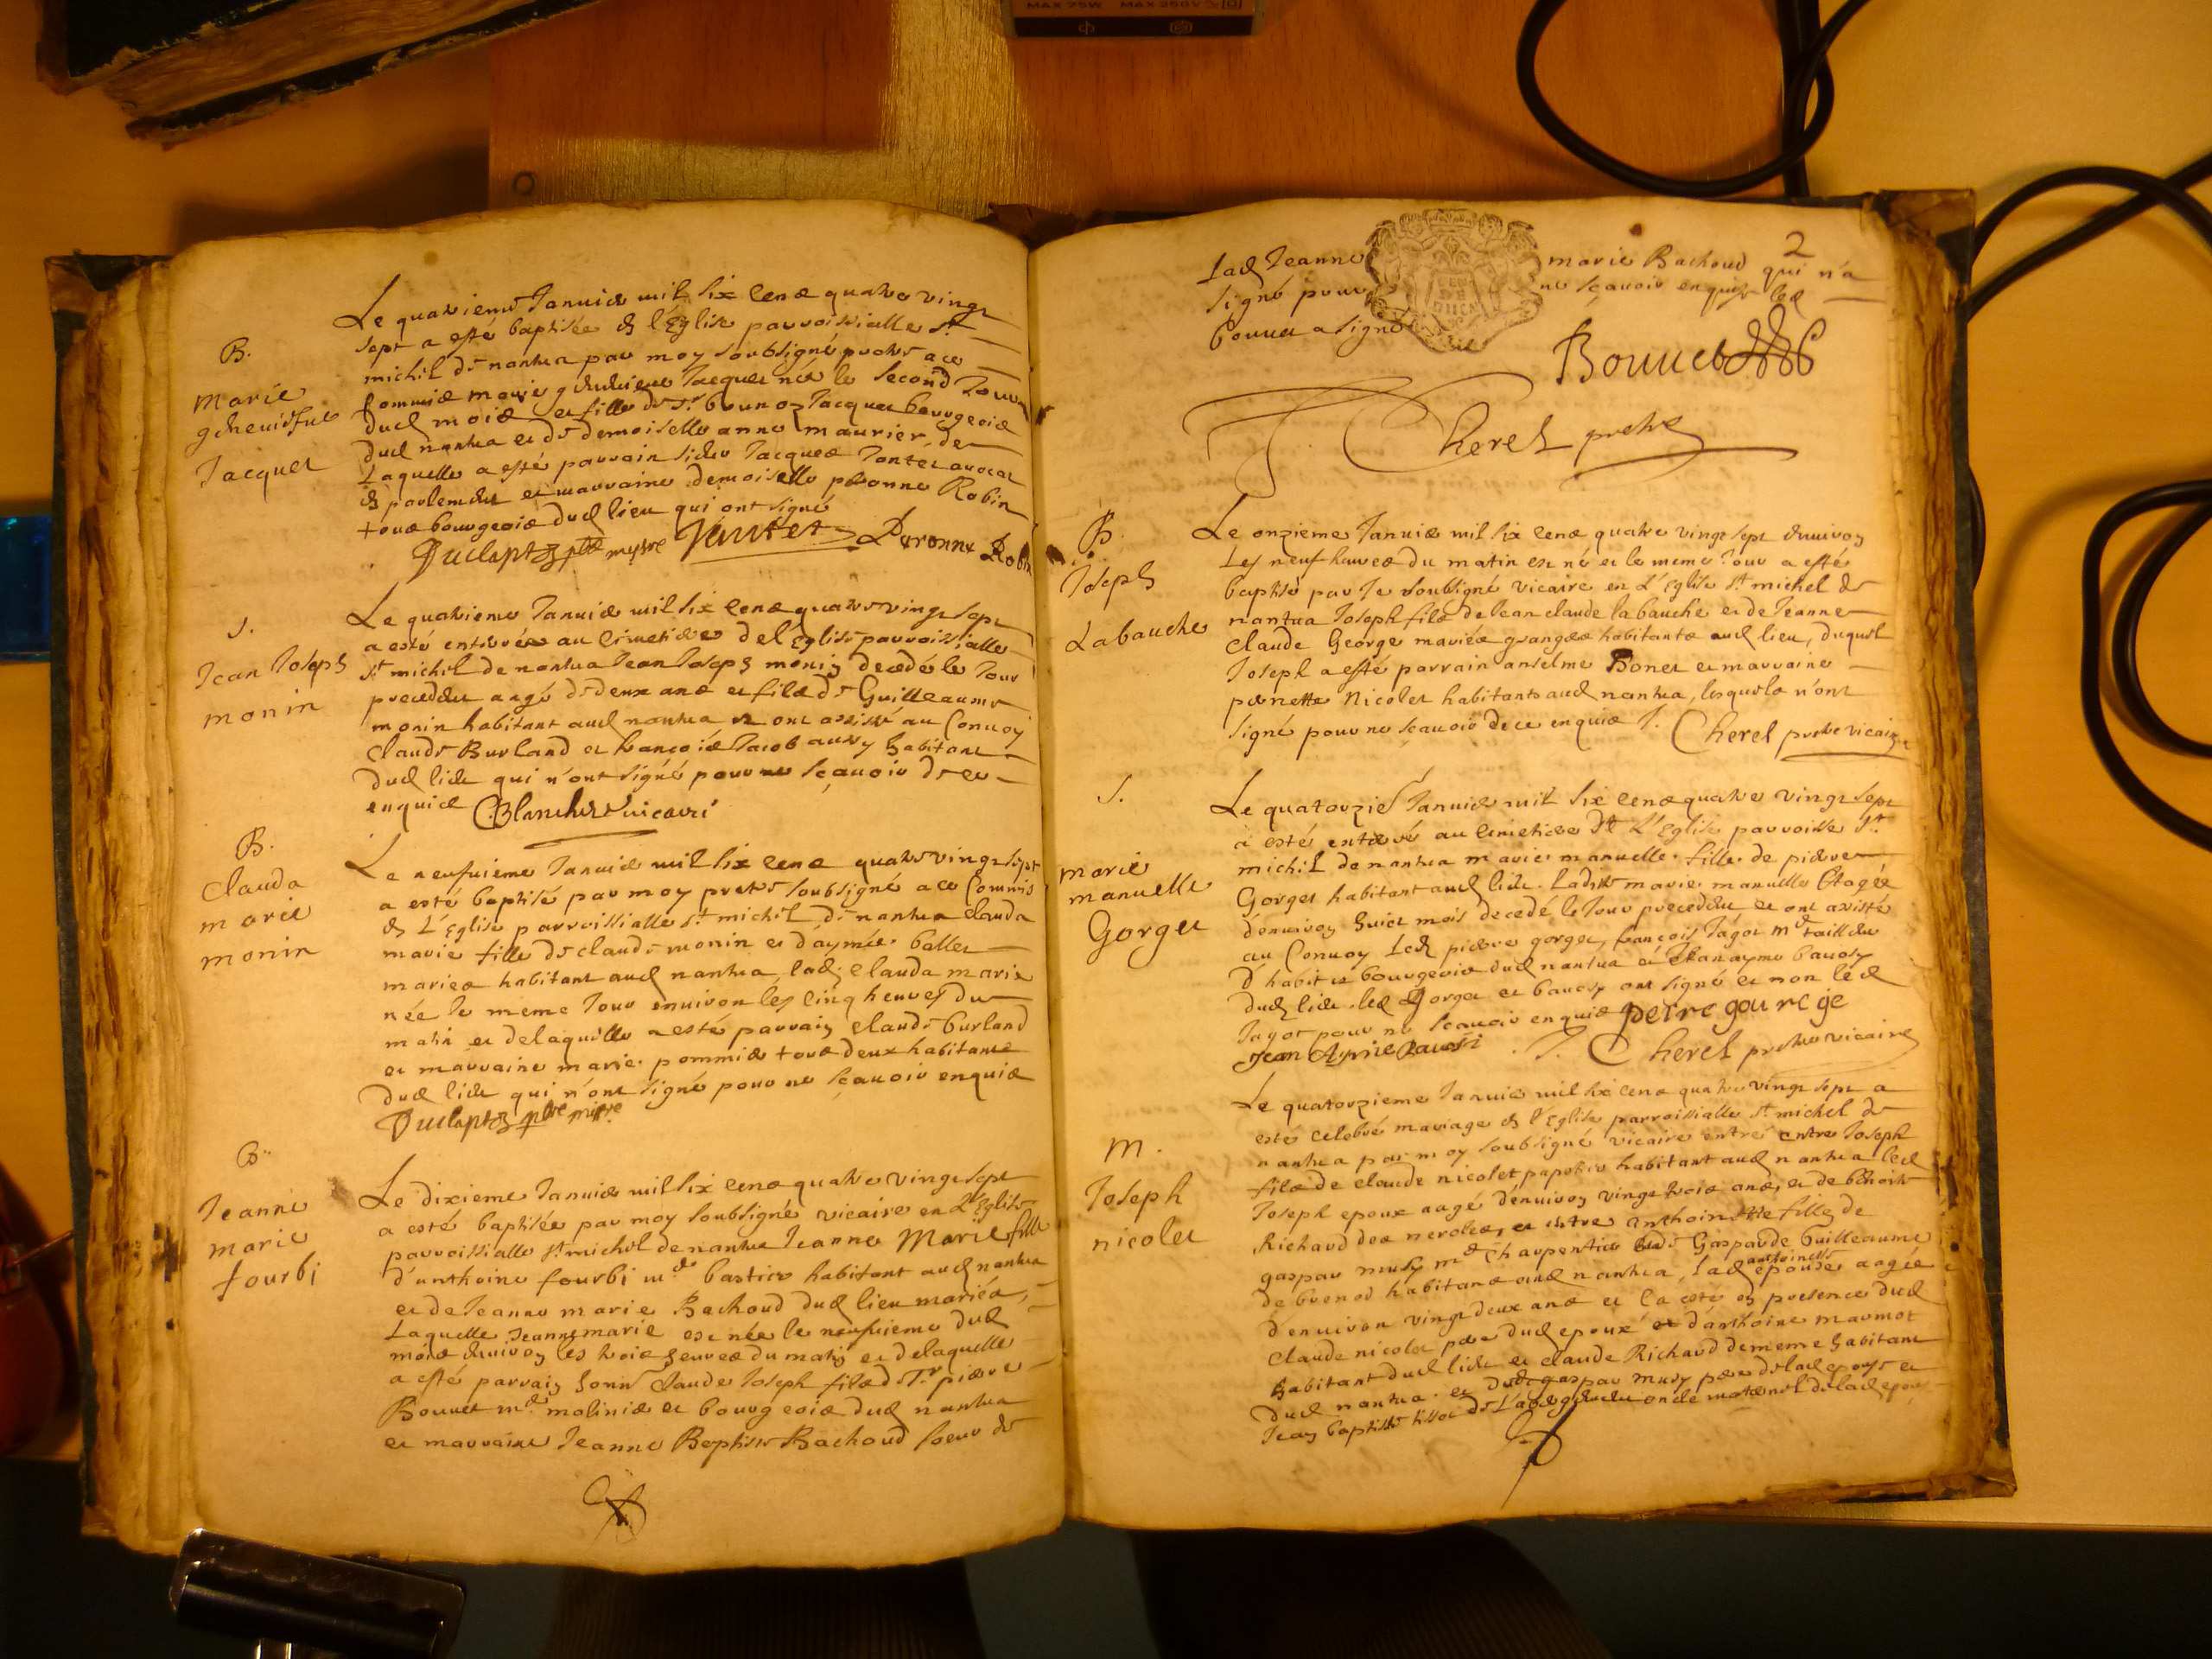 MAX 75W MAX 250V
B.
marie
Jacquet
Le quatrieme Janvier mil six cens quatre vingt
sept a esté baptisée en l'Eglise parroissialle St
michel de nantua par moy soubsigné prebtre a ce
commis marie Jacquet née le second Jour
dud mois et fille de Sr Jacquet bourgeois
dud nantua et de demoiselle anne maurier de
Laquelle a esté parrain sieur Jacques Jantet avocat
en parlement et marraine demoiselle peronne Robin
tous bourgeois dud lieu qui ont signé
Jantet Peronne Robin
S.
Jean Joseph
monin
Le quatrieme Janvier mil six cens quatre vingt sept
a esté enterré au cimetiere de l'Eglise parroissialle
St michel de nantua Jean Joseph monin decedé le Jour
precedent aagé de deux ans et fils de Guilleaume
monin habitant aud nantua et ont assisté au Convoy
Claude Burland et francois Jacob aussy habitant
dud lieu qui n'ont signé pour ne sçavoir de ce
enquis Blanchet vicaire
B.
Clauda
marie
monin
Le neufvieme Janvier mil six cens quatre vingt sept
a esté baptisé par moy prebtre soubsigné a ce Commis
en L'Eglise parroissialle St michel de nantua Clauda
marie fille de claude monin et d'aymée ballet
mariés habitant aud nantua, lad. Clauda marie
née le meme Jour environ les cinq heures du
matin et de laquelle a esté parrain Claude burland
et marraine marie pommier tous deux habitants
dud lieu qui n'ont signé pour ne sçavoir enquis
B.
Jeanne
marie
fourbi
Le dixieme Janvier mil six cens quatre vingt sept
a esté baptisée par moy soubsigné vicaire en L'Eglise
parroissialle St michel de nantua Jeanne Marie fille
d'anthoine fourbi md bastier habitant aud nantua
et de Jeanne marie Bachoud dud lieu mariés,
Laquelle Jeanne marie est née le neufvieme dud
mois environ les trois heures du matin et de laquelle
a esté parrain honn Claude Joseph fils de Sr pierre
Bonnet md molinier et bourgeois dud nantua
et marraine Jeanne Baptiste Bachoud soeur de
2
Lad Jeanne marie Bachoud qui n'a
signé pour ne sçavoir enquise led
bonnet a signé
Bonnet
J. Cherel prebtre
B.
Joseph
Labauche
Le onzieme Janvier mil six cens quatre vingt sept environ
Les neuf heures du matin est né et le meme Jour a esté
baptisé par Je soubsigné vicaire en L'Eglise St michel de
nantua Joseph fils de Jean claude labauche et de Jeanne
claude George mariés grangers habitants aud lieu, duquel
Joseph a esté parrain anselme Bonet et marraine
pernette Nicolet habitants aud nantua, lesquels n'ont
signé pour ne scavoir de ce enquis J. Cherel prebtre vicaire
S.
marie
manuelle
Gorget
Le quatorzie Janvier mil six cens quatre vingt sept
a esté enterré au Cimetiere de L'Eglise parroisse St
michel de nantua marie manuelle fille de pierre
Gorget habitant aud lieu. Ladite marie manuelle aagée
d'environ huict mois decedé le Jour precedent et ont assisté
au Convoy Led pierre gorget, françois Jagot md tailleur
d'habit et bourgeois dud nantua et Jean ayme bavosy
dud lieu. led Gorget et bavosy ont signé et non led
Jagot pour ne scavoir enquis petre gourge
J. Cherel prebtre vicaire
M.
Joseph
nicolet
Le quatorzieme Janvier mil six cens quatre vingt sept a
esté celebré mariage en l'Eglise parroissialle St michel de
nantua par moy soubsigné vicaire entre entre Joseph
fils de Claude nicolet papetier habitant aud nantua led
Joseph epoux aagé d'environ vingt trois ans, et de benoite
Richard des nerolles, et entre anthoinette fille de
gaspar musy md charpentier et de Gasparde Guilleaume
de brenod habitans aud nantua, lad anthoinette epouse aagée
d'environ vingt deux ans et ca esté en presence dud
Claude nicolet pere dud epoux et d'anthoine marmot
habitant dud lieu et claude Richard de meme habitant
dud nantua. et dud gaspar musy pere de lad epouse et
Jean baptiste tissot oncle maternel de lad epouse